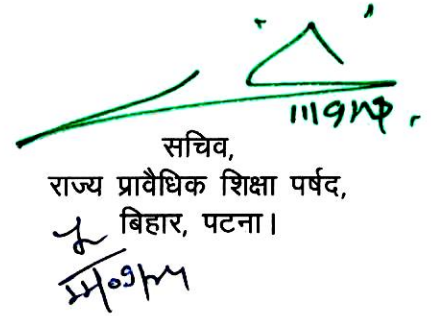 सचिव,
राज्य प्रावैधिक शिक्षा पर्षद,
बिहार, पटना।